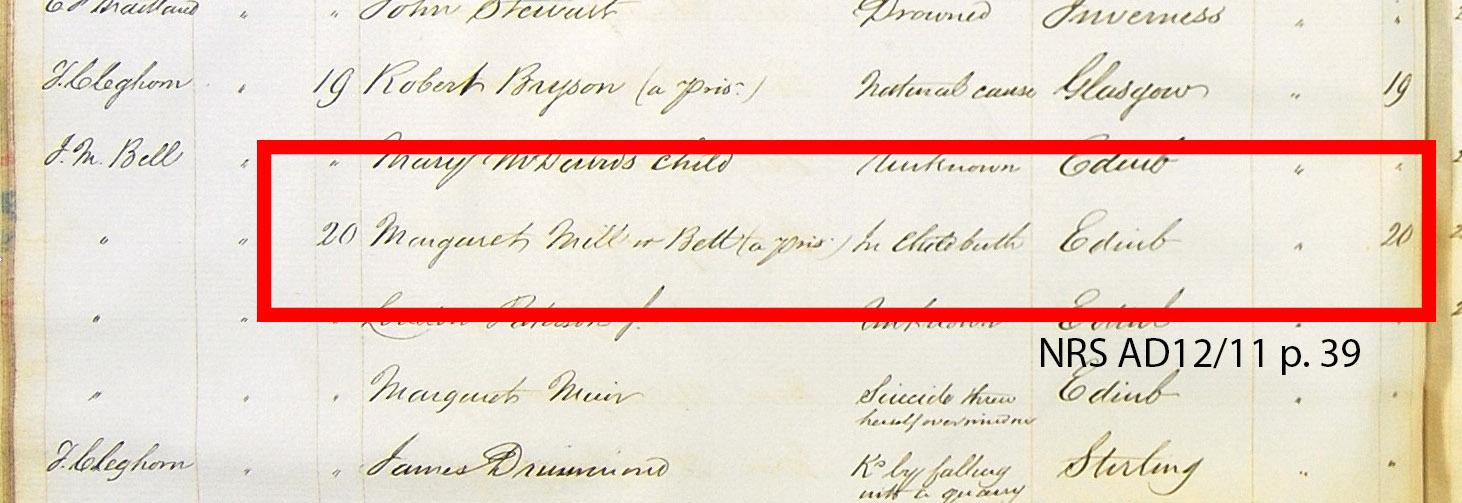 John Stewart Drowned Inverness " "
J. Cleghorn " 19 Robert Bryson (a pris:) Natural cause Glasgow " 19
J. M. Bell " " Mary child Unknown Edinb " "
" " 20 Margaret Mill or Bell (a pris:) In childbirth Edinb " 20
" " " Unknown Edinb " "
NRS AD12/11 p. 39
" " " Margaret Muir Suicide threw Edinb " "
herself over window
J. Cleghorn " " James Drummond Kd by falling Stirling " "
into a quarry